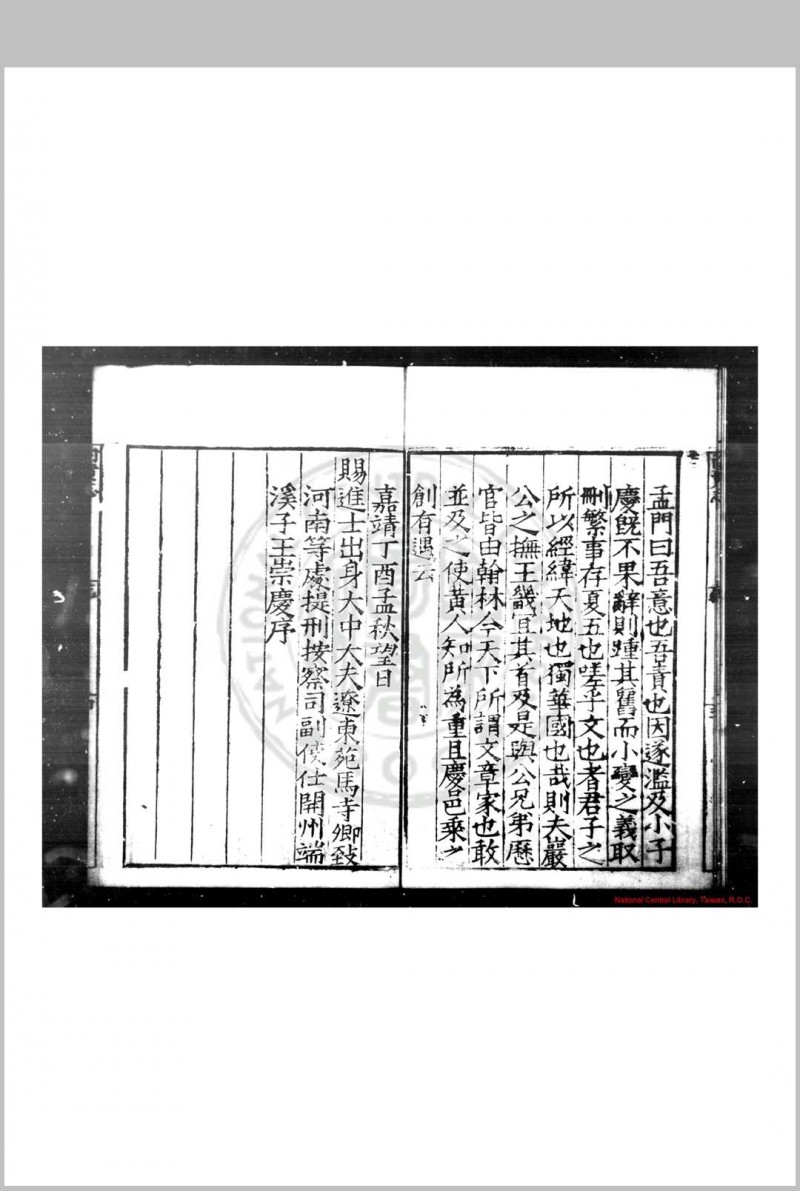 孟門曰吾意也吾責也因遂濫及小子
慶旣不果辭則踵其舊而小變之義取
刪繁事存夏五也嗟乎文也者君子之
所以經緯天地也獨華國也哉則夫嚴
公之撫王畿冝其首及是與公兄弟歷
官皆由翰林今天下所謂文章家也敢
並及之使黄人知所為重且慶邑乘之
創有遇云
嘉靖丁酉孟秋望日
賜進士出身大中大夫遼東苑馬寺卿致
河南等處提刑按察司副使仕開州端
溪子王崇慶序
National Central Library, Taiwan, R.O.C.